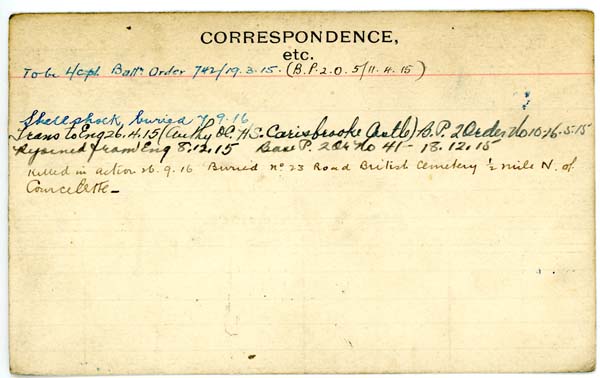 CORRESPONDENCE,
etc.
To be L/Cpl. Battn Order 742/19.3.15. (B.P.2.O.5/11.4.15)
Shellshock, buried 7.9.16
Trans to Eng 26.4.15 (Authy OC. H.S. Carisbrooke Castle) B.P. 2 Order No 10. 26.5.15
Rejoined from Eng 8.12.15 Base P. 2 Or No 41 - 18.12.15
Killed in action 26.9.16 Buried No 23 Road British Cemetery ½ mile N. of
Courcelette -